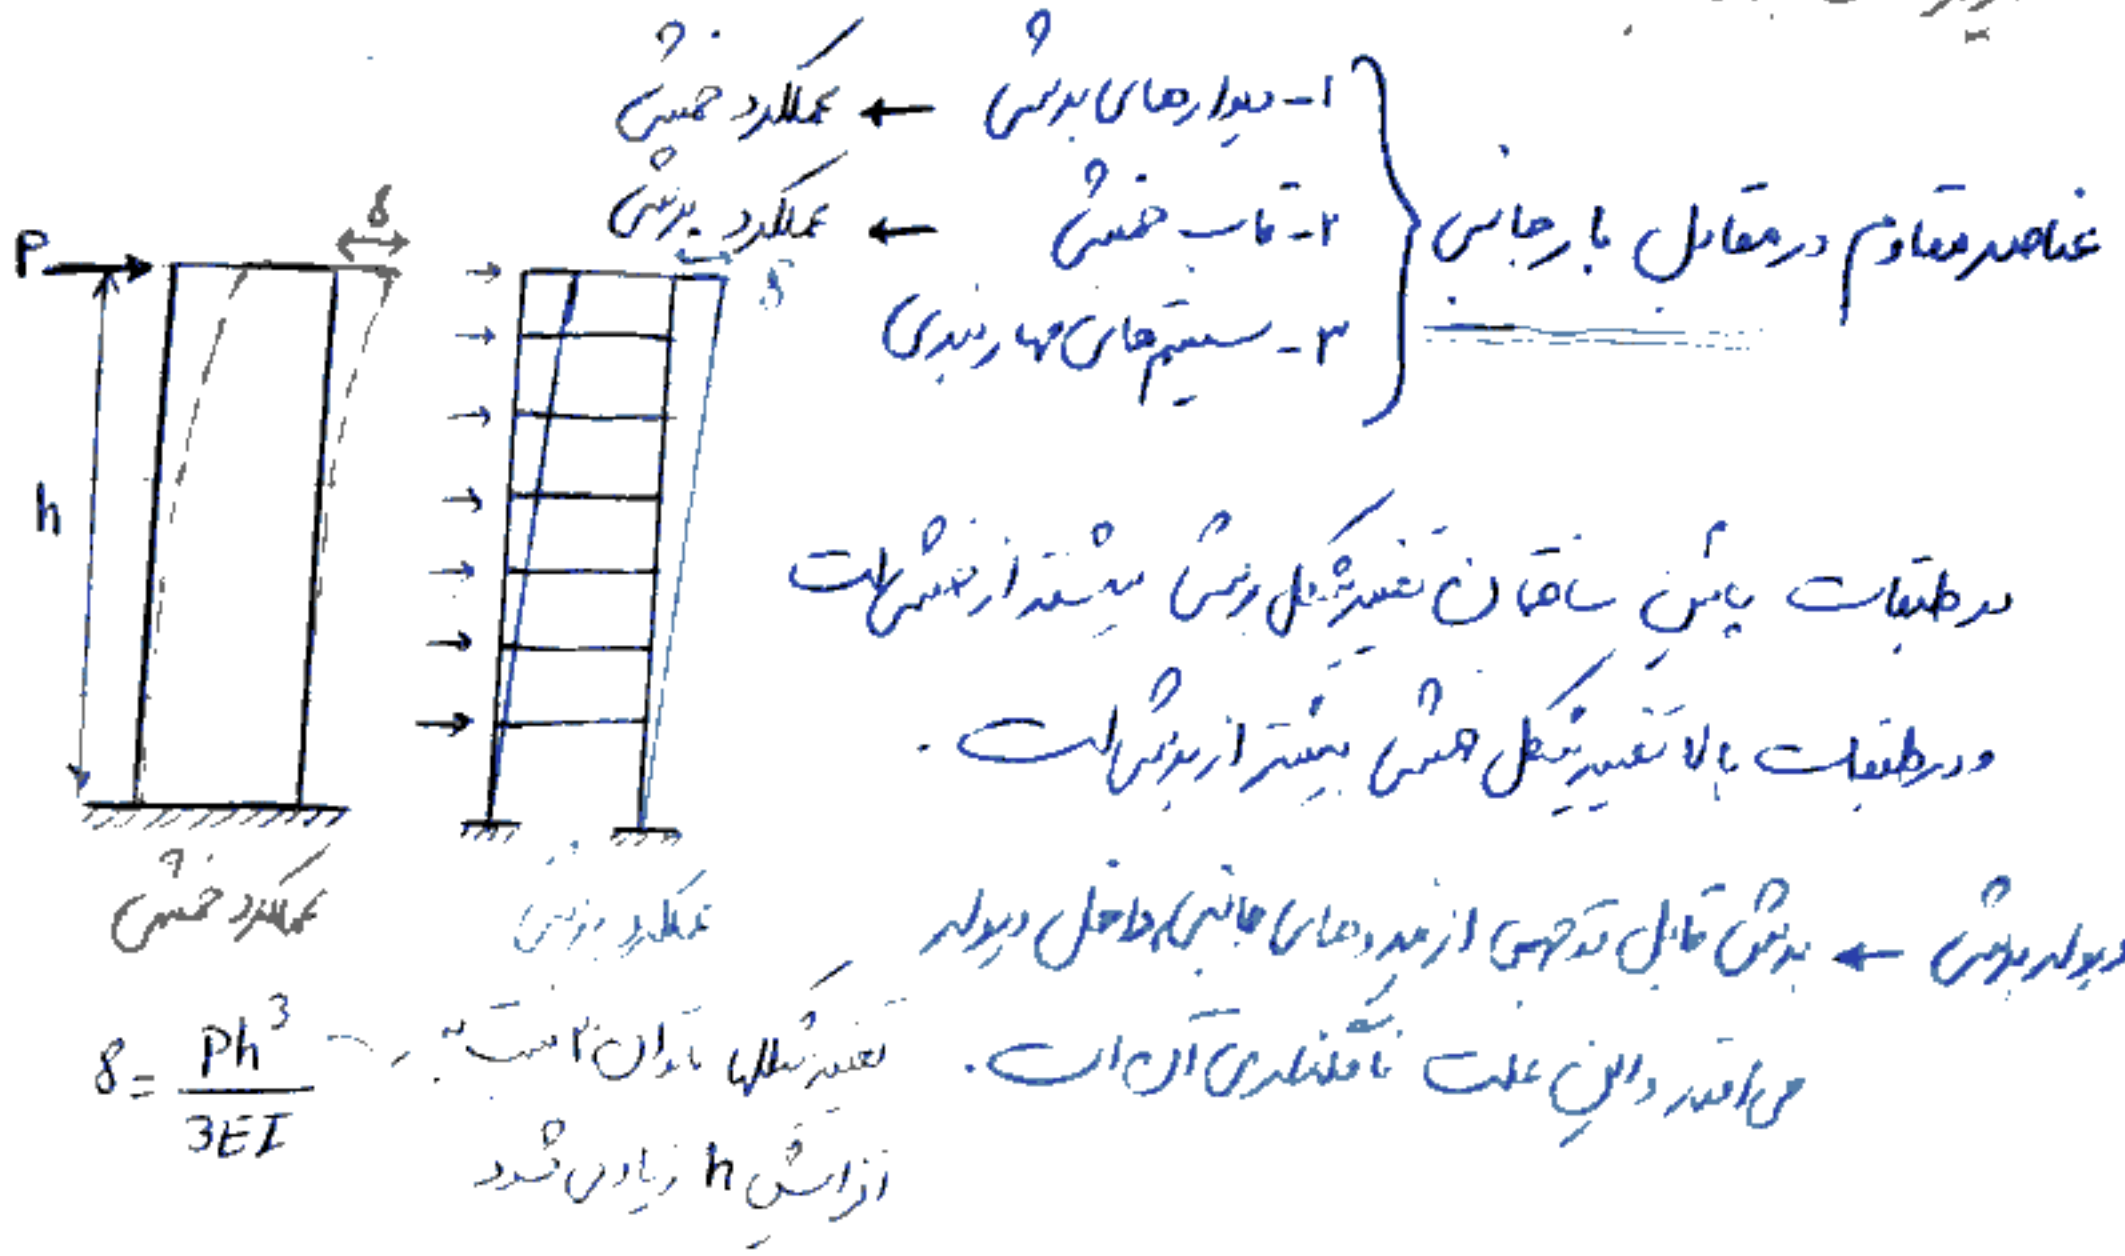 عناصر مقاوم در مقابل بار جانبی
۱- دیوارهای برشی ← عملکرد خمشی
۲- قاب خمشی ← عملکرد برشی
۳- سیستم‌های مهاربندی
P
δ
δ
h
در طبقات پایین ساختمان تغییر شکل برشی بیشتر از خمشی است
و در طبقات بالا تغییر شکل خمشی بیشتر از برشی است.
عملکرد خمشی
عملکرد برشی
دیوار برشی ← برش قابل توجهی از نیروهای جانبی داخل دیوار
می‌افتد و این علت نامگذاری آن است.
δ = Ph³ / 3EI
تغییر شکلها با توان ۳ نسبت به
افزایش h زیاد می‌شود